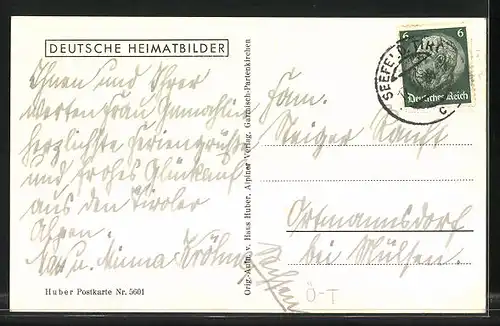 DEUTSCHE HEIMATBILDER
Ihnen und Ihrer
werten Frau Gemahlin
herzlichste Feriengrüße
und frohes Glückauf
aus den Tiroler
Alpen.
u. Minna Kröhne
Huber Postkarte Nr. 5601
Orig.-Aufn. v. Hans Huber, Alpiner Verlag, Garmisch-Partenkirchen
6 6
Deutsches Reich
SEEFELD
c
Fam.
Steiger
Ortmannsdorf
bei Mülsen.
Sachsen
Ö-T